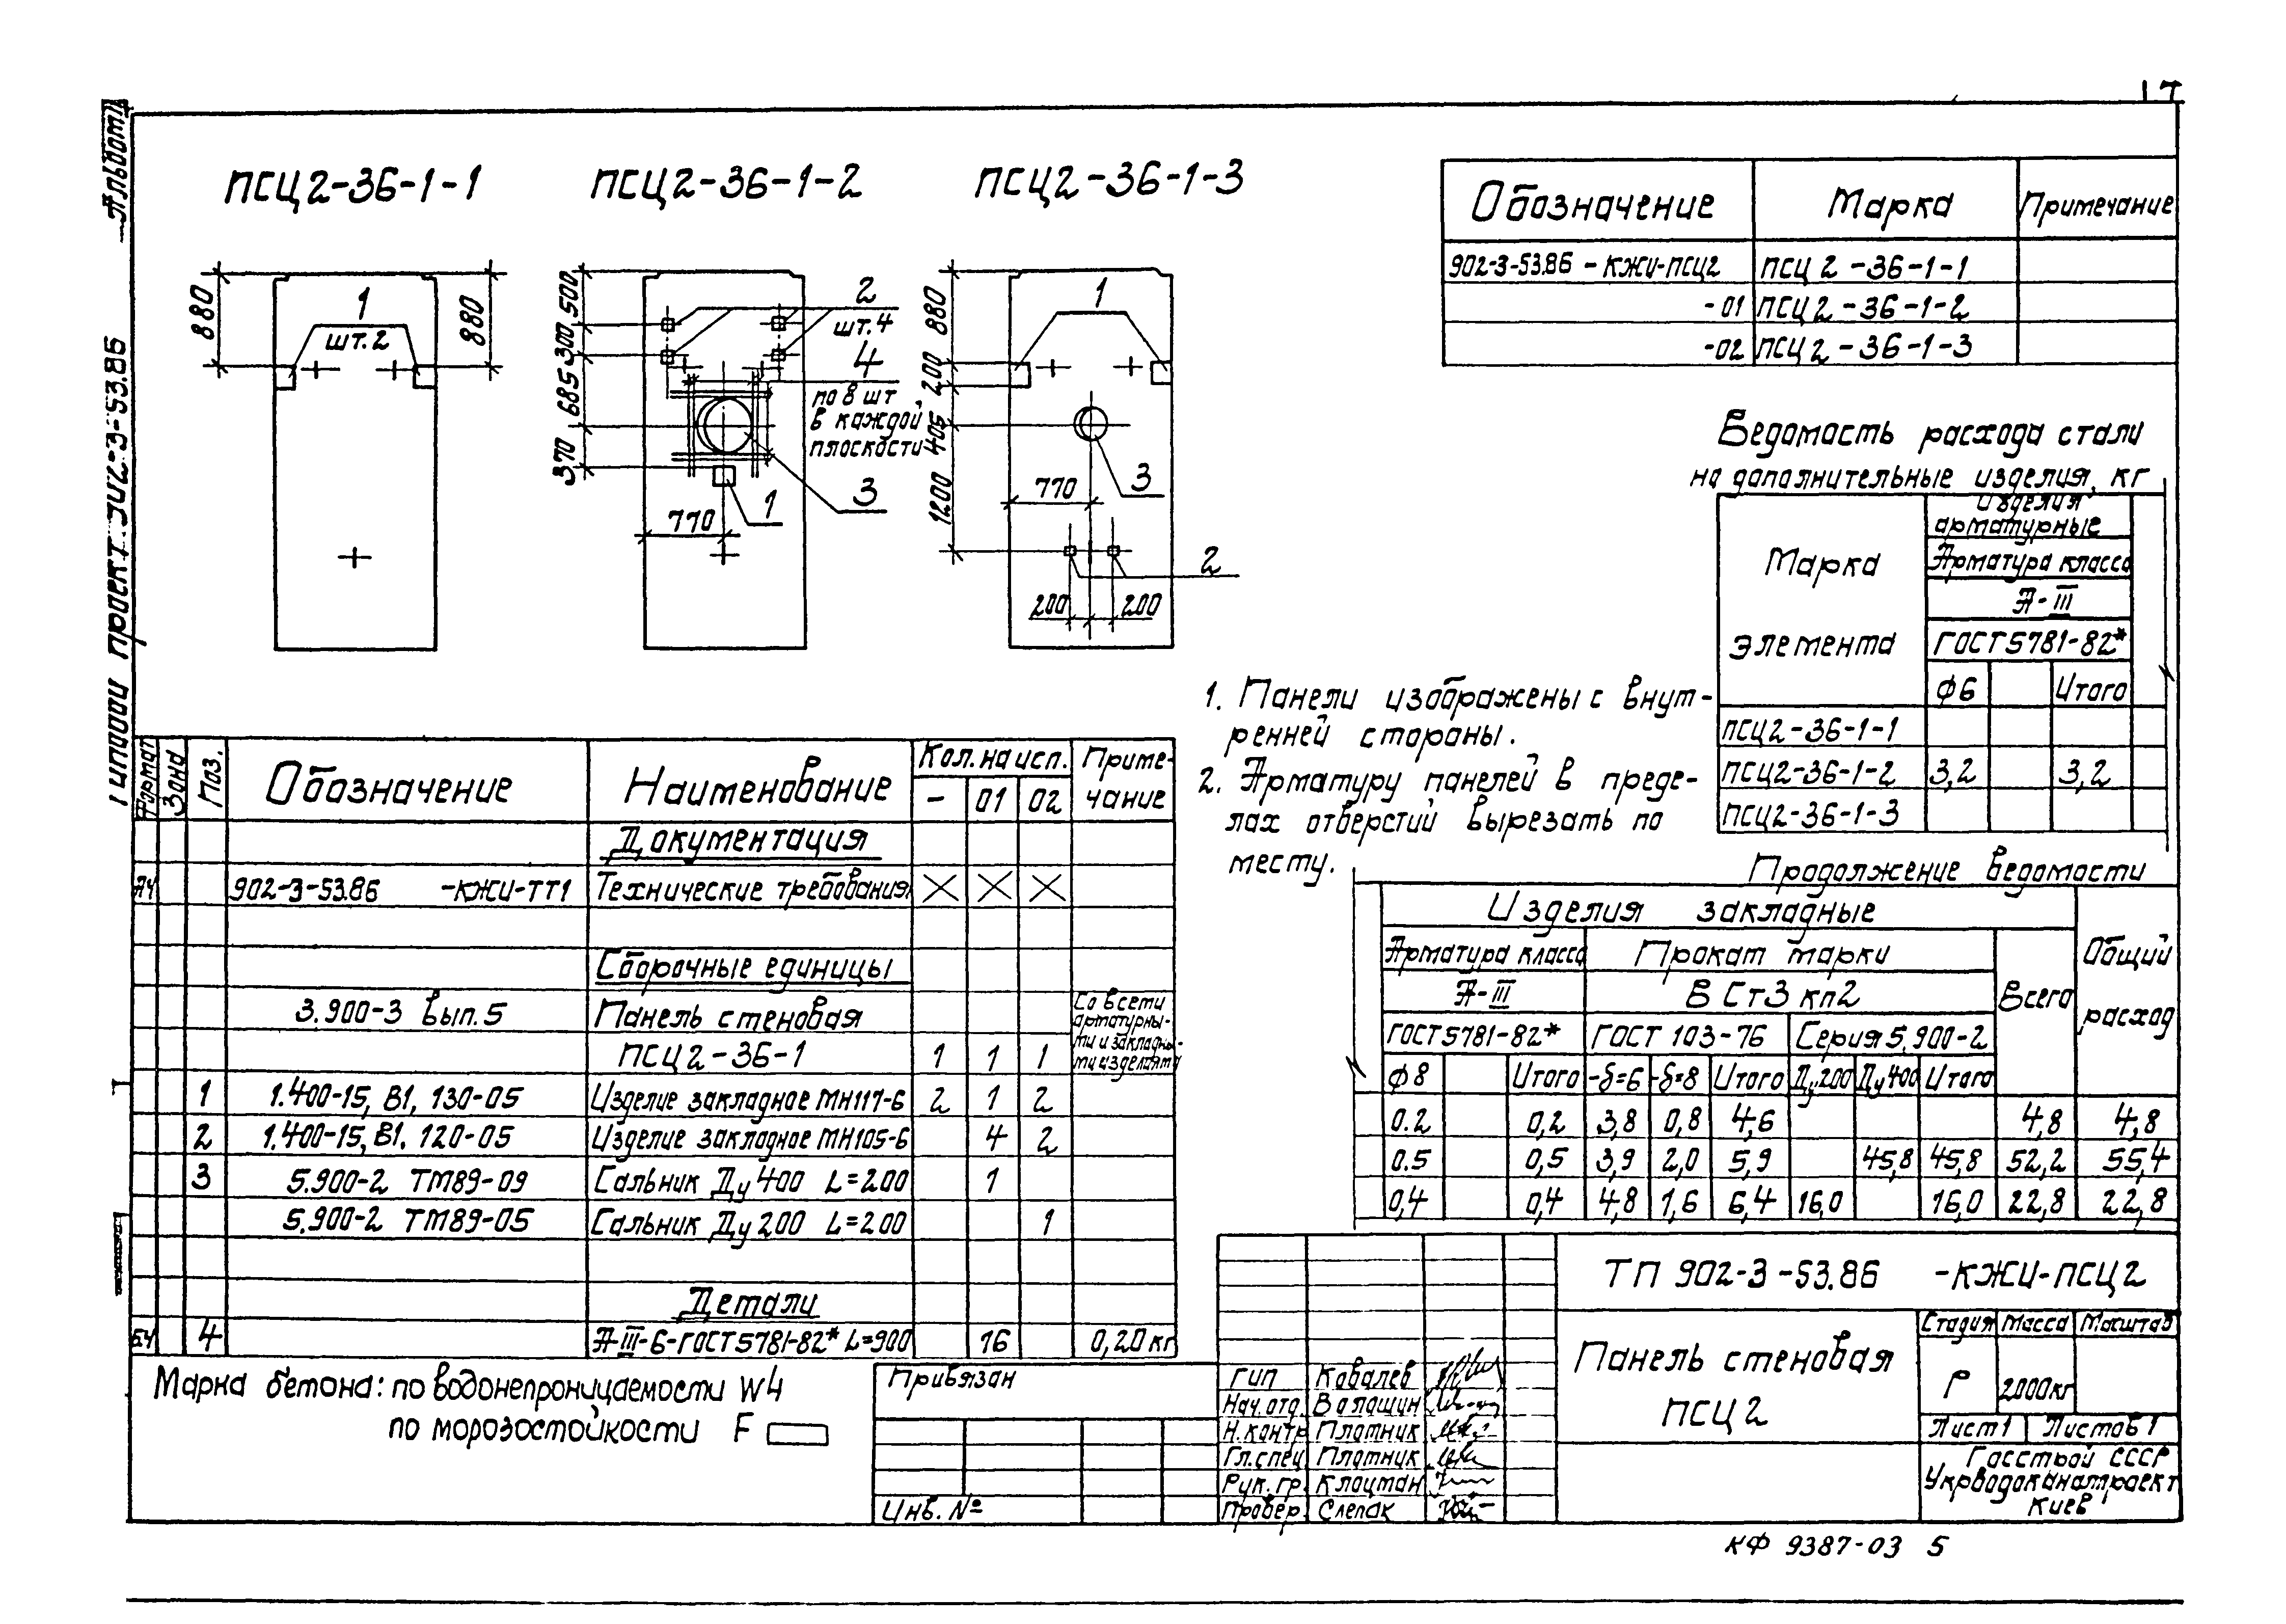 17
Альбом
Типовой проект 902-3-53.86
ПСЦ2-36-1-1
ПСЦ2-36-1-2
ПСЦ2-36-1-3
880
1
шт.2
880
500
300
685
370
2
шт.4
4
по 8 шт
в каждой
плоскости
3
1
770
880
200
405
1200
1
3
770
2
200
200
Обозначение Марка Примечание
902-3-53.86 -КЖИ-ПСЦ2 ПСЦ2-36-1-1
-01 ПСЦ2-36-1-2
-02 ПСЦ2-36-1-3
Ведомость расхода стали
на дополнительные изделия, кг
Марка элемента
Изделия
арматурные
Арматура класса
А-III
ГОСТ5781-82*
ф6 Итого
ПСЦ2-36-1-1
ПСЦ2-36-1-2 3,2 3,2
ПСЦ2-36-1-3
1. Панели изображены с внут-
ренней стороны.
2. Арматуру панелей в преде-
лах отверстий вырезать по
месту.
Продолжение ведомости
Изделия закладные
Арматура класса Прокат марки Всего Общий расход
А-III ВСт3 кп2
ГОСТ5781-82* ГОСТ 103-76 Серия 5.900-2
ф8 Итого -δ=6 -δ=8 Итого Ду200 Ду400 Итого
0.2 0,2 3,8 0,8 4,6 4,8 4,8
0.5 0,5 3,9 2,0 5,9 45,8 45,8 52,2 55,4
0,4 0,4 4,8 1,6 6,4 16,0 16,0 22,8 22,8
Формат Зона Поз. Обозначение Наименование Кол. на исп. Приме-
- 01 02 чание
Документация
А4 902-3-53.86 -КЖИ-ТТ1 Технические требования X X X
Сборочные единицы
3.900-3 вып.5 Панель стеновая
ПСЦ2-36-1 1 1 1
Со всеми
арматурны-
ми и закладны-
ми изделиями
1 1.400-15, В1, 130-05 Изделие закладное МН117-6 2 1 2
2 1.400-15, В1. 120-05 Изделие закладное МН105-6 4 2
3 5.900-2 ТМ89-09 Сальник Ду 400 L=200 1
5.900-2 ТМ89-05 Сальник Ду 200 L=200 1
Детали
БЧ 4 А-III-6-ГОСТ5781-82* L=900 16 0,20кг
Марка бетона: по водонепроницаемости W4
по морозостойкости F
Привязан
Инв. №
ГИП Ковалев
Нач.отд. Валашин
Н.контр Плотник
Гл.спец Плотник
Рук.гр. Клоцман
Провер. Слепак
ТП 902-3-53.86 -КЖИ-ПСЦ2
Панель стеновая
ПСЦ2
Стадия Масса Масштаб
Р 2000кг
Лист 1 Листов 1
Госстрой СССР
Укрводоканалпроект
Киев
КФ 9387-03 5